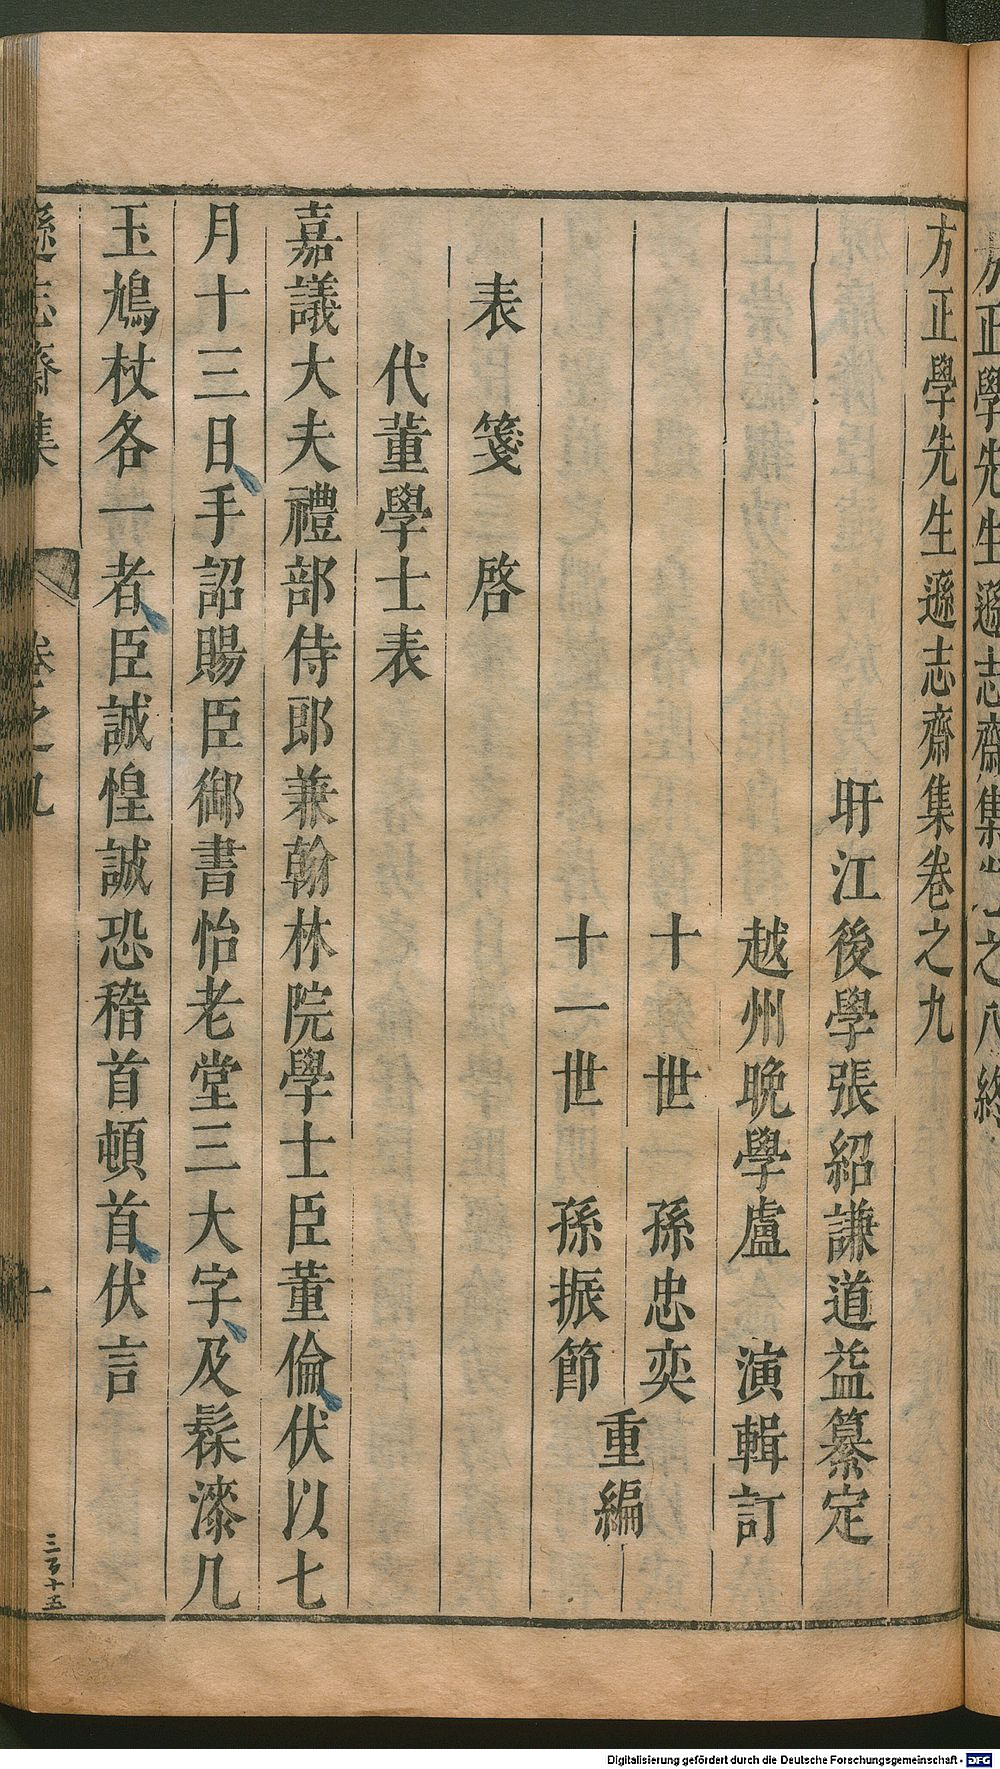 方正學先生遜志齋集卷之八終
方正學先生遜志齋集卷之九
盱江後學張紹謙道益纂定
越州晚學盧 演輯訂
十 世 孫忠奕
十一世 孫振節
重編
表 箋 啓
代董學士表
嘉議大夫禮部侍郎兼翰林院學士臣董倫伏以七
月十三日手詔賜臣御書怡老堂三大字及髹漆几
玉鳩杖各一者臣誠惶誠恐稽首頓首伏言
遜志齋集 卷之九 一
三百十五
Digitalisierung gefördert durch die Deutsche Forschungsgemeinschaft - DFG